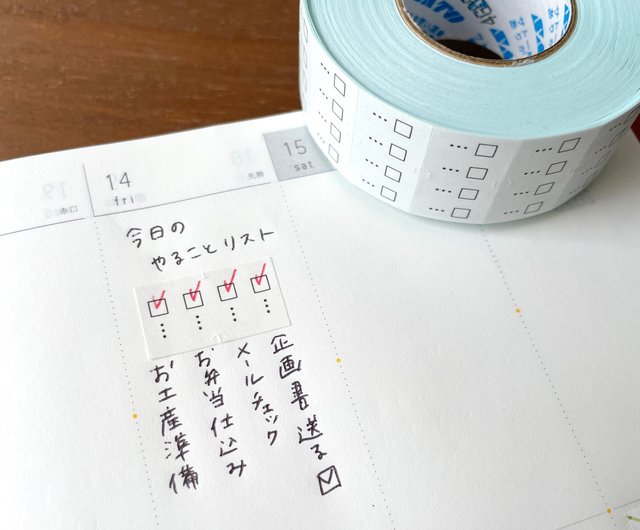 14
fri
先勝
15
sat
赤口
今日の
やることリスト
企画書送る☑
メールチェック
お弁当仕込み
お土産準備
SATO
サトー